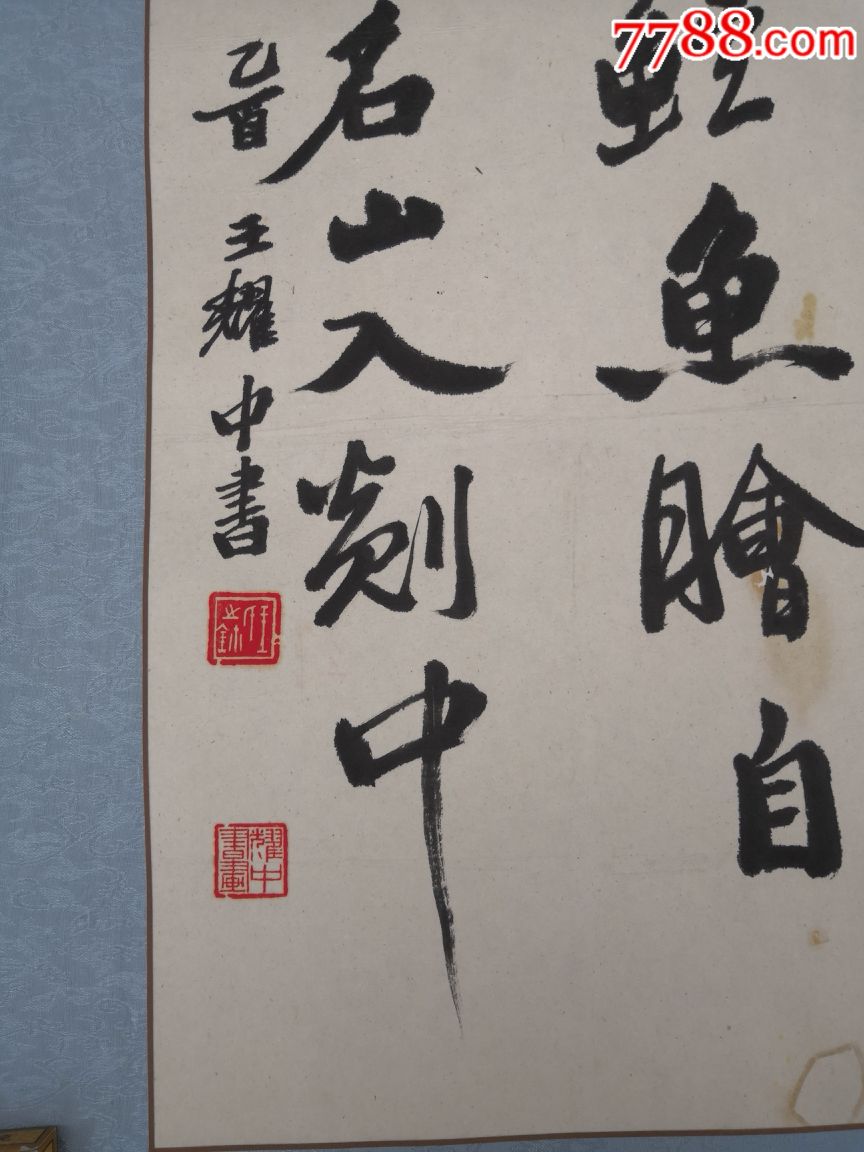 7788.com
鱼膾自
名山入剡中
乙酉 王耀中書
耀中書畫